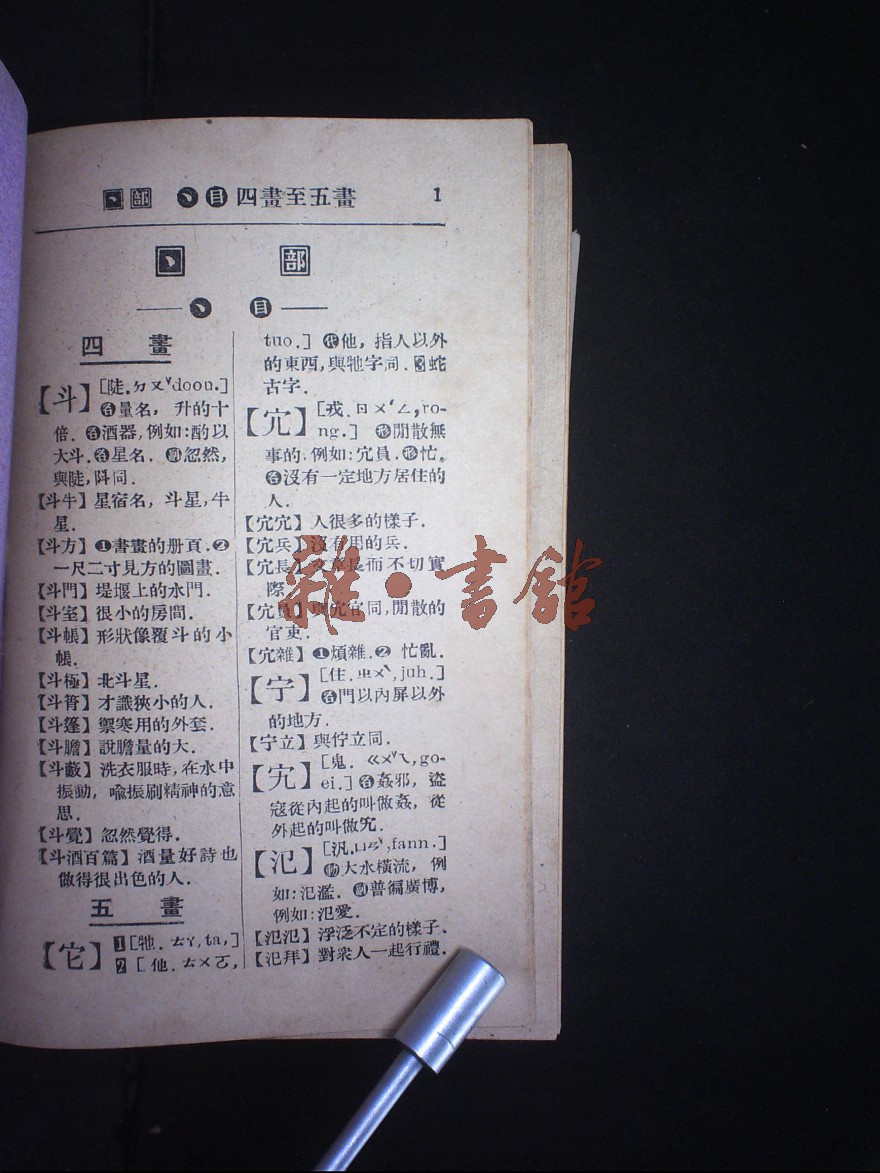 丶部 丶目四畫至五畫 1
丶 部
丶 目
四 畫
【斗】[陡.ㄉㄡˇdoou.]
名量名，升的十
倍．名酒器，例如：酌以
大斗．名星名．副忽然，
與陡，阧同．
【斗牛】星宿名，斗星，牛
星．
【斗方】❶書畫的册頁．❷
一尺二寸見方的圖畫．
【斗門】堤堰上的水門．
【斗室】很小的房間．
【斗帳】形狀像覆斗的小
帳．
【斗極】北斗星．
【斗筲】才識狹小的人．
【斗篷】禦寒用的外套．
【斗膽】說膽量的大．
【斗藪】洗衣服時，在水中
振動，喩振刷精神的意
思．
【斗覺】忽然覺得．
【斗酒百篇】酒量好詩也
做得很出色的人．
五 畫
【它】1[牠．ㄊㄚ，ta,]
2[他．ㄊㄨㄛ，
tuo.]代他，指人以外
的東西，與牠字同．3蛇
古字．
【宂】[戎．ㄖㄨˊㄥ,ro-
ng.]形閒散無
事的．例如：宂員．形忙．
名沒有一定地方居住的
人．
【宂宂】人很多的樣子．
【宂兵】沒有用的兵．
【宂長】文章長而不切實
際．
【宂員】與宂官同，閒散的
官吏．
【宂雜】❶煩雜．❷忙亂．
【宁】[住．ㄓㄨˋ,juh.]
名門以內屏以外
的地方．
【宁立】與佇立同．
【宄】[鬼．ㄍㄨˇㄟ,go-
ei.]名姦邪，盜
寇從內起的叫做姦，從
外起的叫做宄．
【氾】[汎,ㄈㄢˋ,fann.]
動大水橫流，例
如：氾濫．副普徧廣博，
例如：氾愛．
【氾氾】浮泛不定的樣子．
【氾拜】對衆人一起行禮．
雜·書館